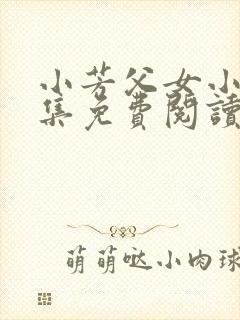 小芳父女小
集免費閱讀
萌萌哒小肉球